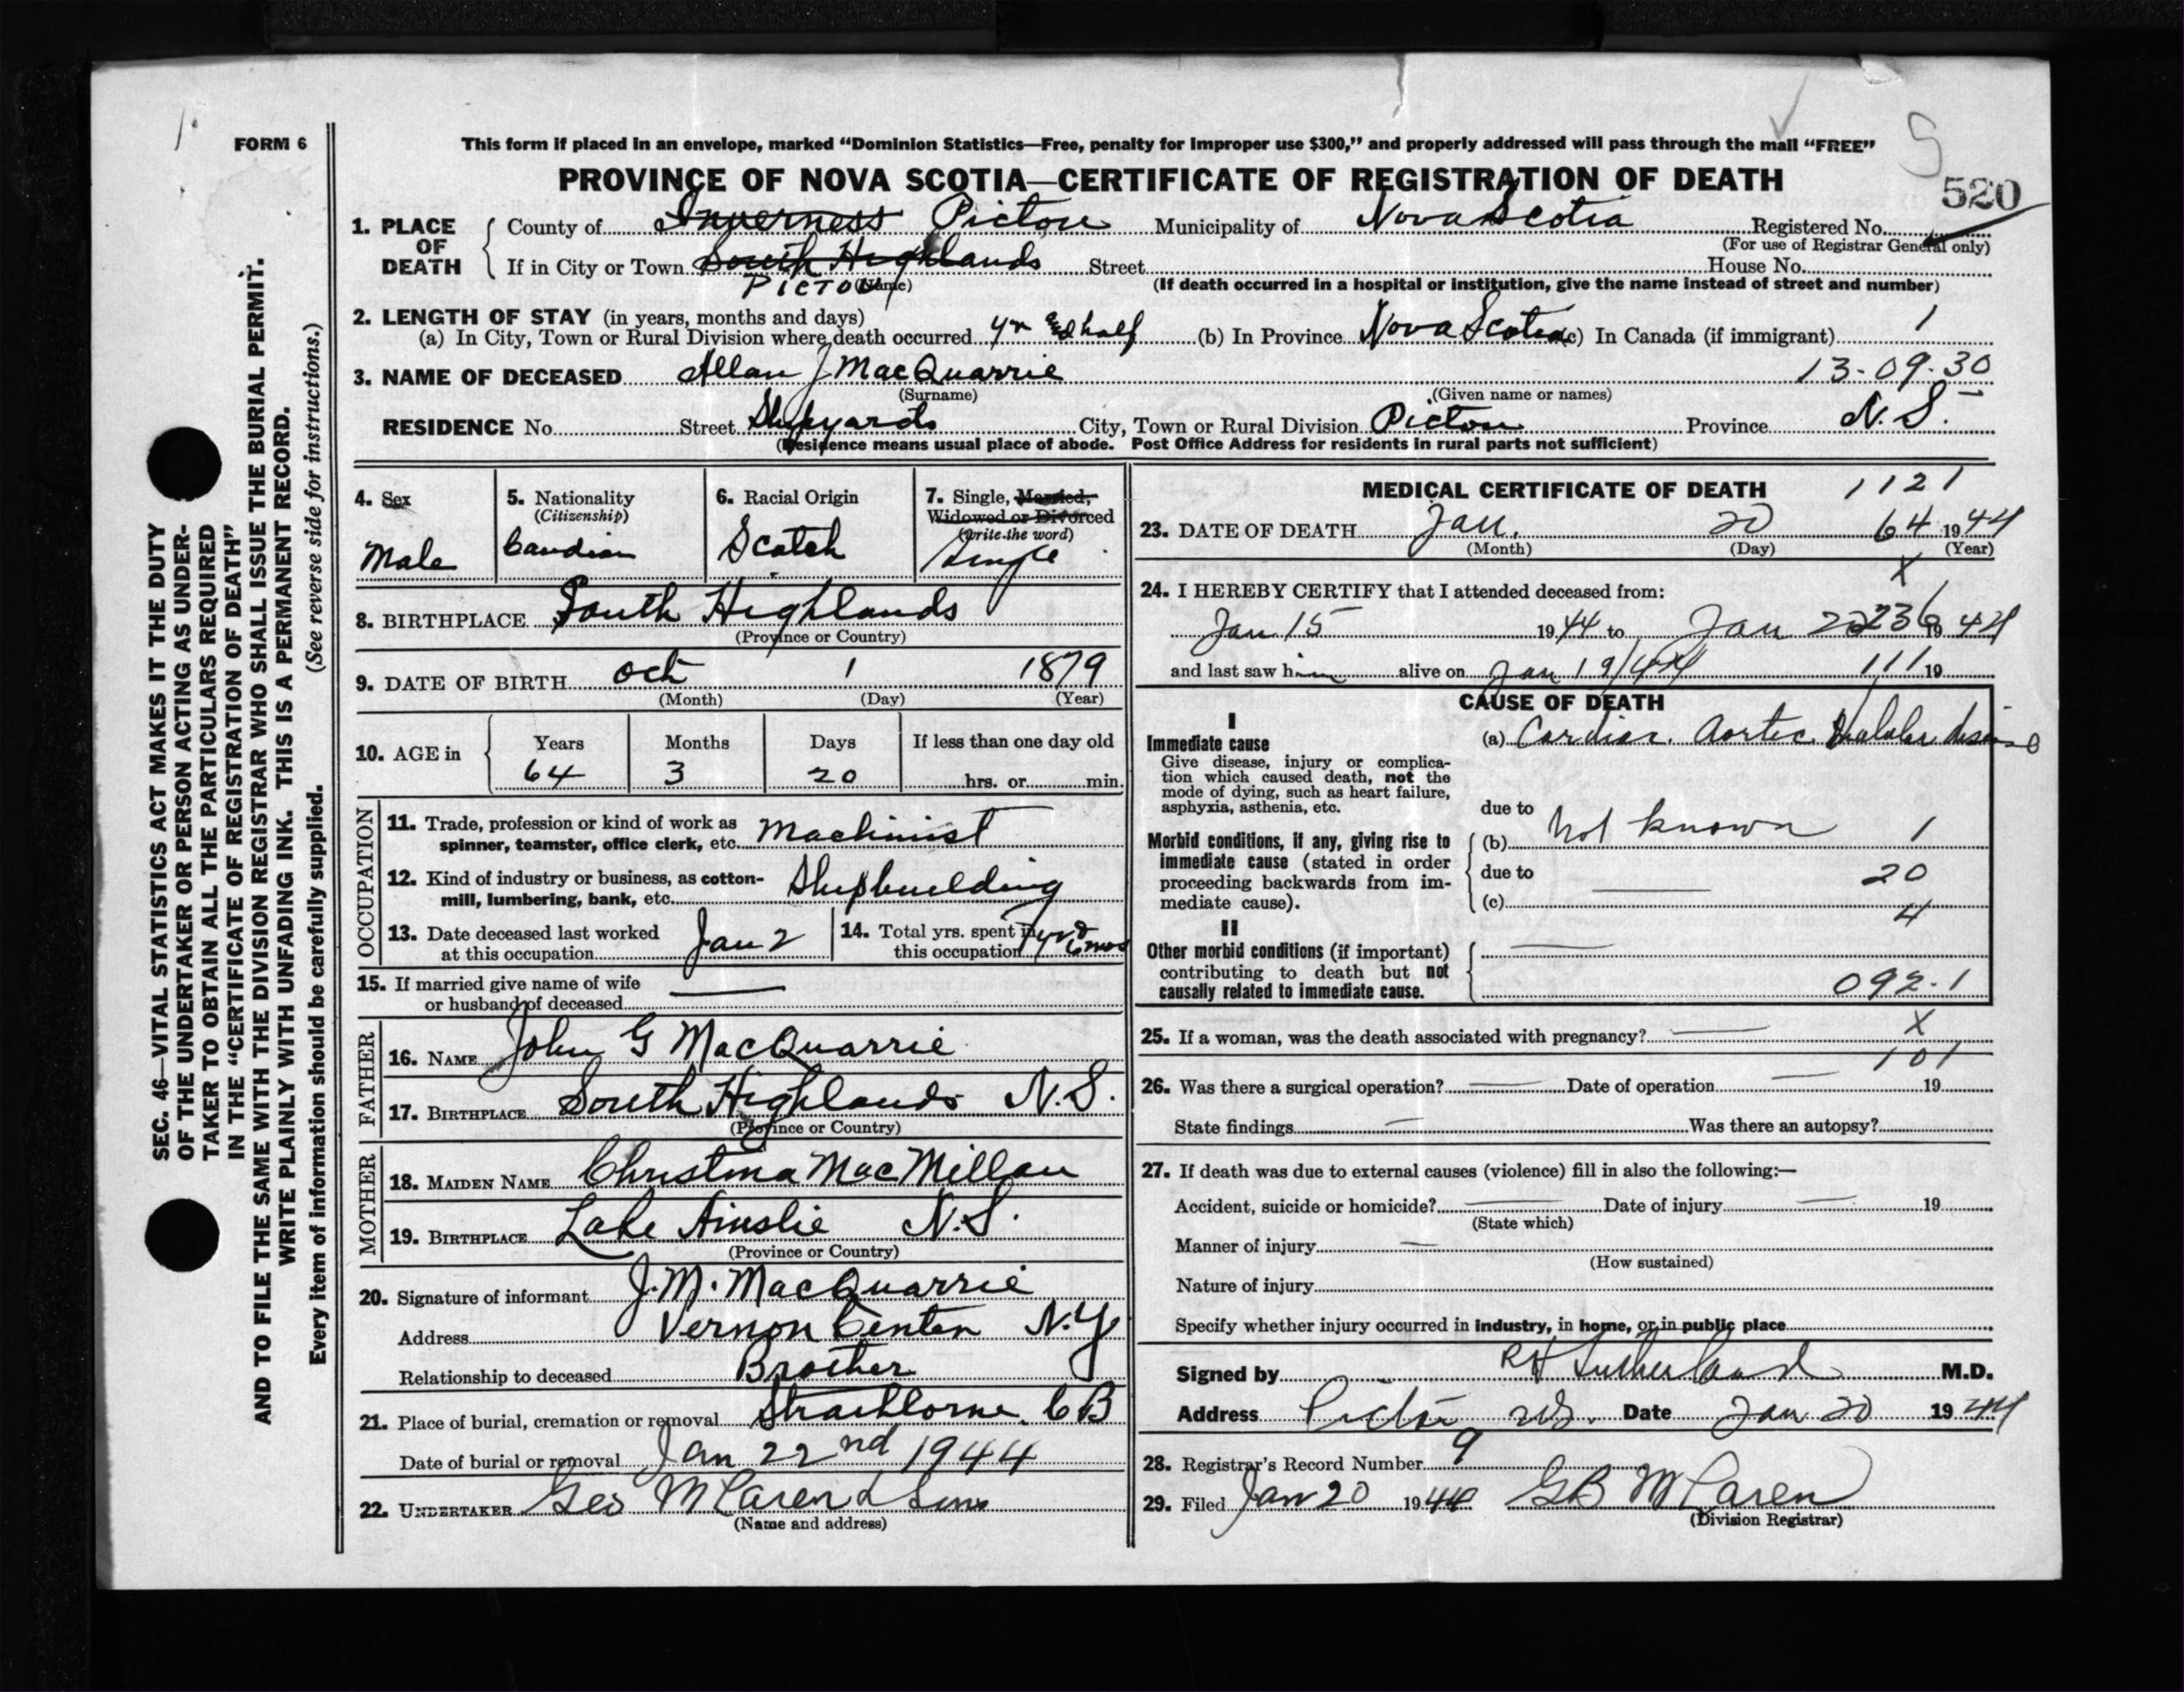 FORM 6
This form if placed in an envelope, marked "Dominion Statistics—Free, penalty for improper use $300," and properly addressed will pass through the mail "FREE"
PROVINCE OF NOVA SCOTIA—CERTIFICATE OF REGISTRATION OF DEATH
520
1. PLACE OF DEATH
County of Inverness Pictou Municipality of Nova Scotia Registered No.
(For use of Registrar General only)
If in City or Town South Highlands Street House No.
PICTOU (Name) (If death occurred in a hospital or institution, give the name instead of street and number)
2. LENGTH OF STAY (in years, months and days)
(a) In City, Town or Rural Division where death occurred yr and half (b) In Province Nova Scotia (c) In Canada (if immigrant) 1
3. NAME OF DECEASED Allan J MacQuarrie 13-09-30
(Surname) (Given name or names)
RESIDENCE No. Street Shipyards City, Town or Rural Division Pictou Province N.S.
(Residence means usual place of abode. Post Office Address for residents in rural parts not sufficient)
4. Sex
Male
5. Nationality
(Citizenship)
Candian
6. Racial Origin
Scotch
7. Single, Married,
Widowed or Divorced
(Write the word)
Single
8. BIRTHPLACE South Highlands
(Province or Country)
9. DATE OF BIRTH Oct 1 1879
(Month) (Day) (Year)
10. AGE in
Years Months Days If less than one day old
64 3 20 hrs. or min.
OCCUPATION
11. Trade, profession or kind of work as
spinner, teamster, office clerk, etc. Machinist
12. Kind of industry or business, as cotton-
mill, lumbering, bank, etc. Shipbuilding
13. Date deceased last worked
at this occupation Jan 2
14. Total yrs. spent in
this occupation 1 yr & 6 mos
15. If married give name of wife
or husband of deceased
FATHER
16. NAME John G MacQuarrie
17. BIRTHPLACE South Highlands N.S.
(Province or Country)
MOTHER
18. MAIDEN NAME Christina MacMillan
19. BIRTHPLACE Lake Ainslie N.S.
(Province or Country)
20. Signature of informant J.M. MacQuarrie
Address Vernon Center N.Y
Relationship to deceased Brother
21. Place of burial, cremation or removal Strathlorne, C B
Date of burial or removal Jan 22nd 1944
22. UNDERTAKER Geo McLaren & Sons
(Name and address)
MEDICAL CERTIFICATE OF DEATH 1121
23. DATE OF DEATH Jan. 20 64 1944
(Month) (Day) (Year)
X
24. I HEREBY CERTIFY that I attended deceased from:
Jan 15 1944 to Jan 20 236 1944
and last saw him alive on Jan 19/44 111 19
CAUSE OF DEATH
I
Immediate cause
Give disease, injury or complica-
tion which caused death, not the
mode of dying, such as heart failure,
asphyxia, asthenia, etc.
(a) Cardiac. Aortic Valvular disease
due to
Morbid conditions, if any, giving rise to
immediate cause (stated in order
proceeding backwards from im-
mediate cause).
(b) Not known 1
due to 20
(c) 4
II
Other morbid conditions (if important)
contributing to death but not
causally related to immediate cause.
092.1
25. If a woman, was the death associated with pregnancy? X
101
26. Was there a surgical operation? Date of operation 19
State findings Was there an autopsy?
27. If death was due to external causes (violence) fill in also the following:—
Accident, suicide or homicide? Date of injury 19
(State which)
Manner of injury
(How sustained)
Nature of injury
Specify whether injury occurred in industry, in home, or in public place
Signed by RH Sutherland M.D.
Address Pictou NS. Date Jan 20 1944
28. Registrar's Record Number 9
29. Filed Jan 20 1944 GB McLaren
(Division Registrar)
SEC. 46—VITAL STATISTICS ACT MAKES IT THE DUTY
OF THE UNDERTAKER OR PERSON ACTING AS UNDER-
TAKER TO OBTAIN ALL THE PARTICULARS REQUIRED
IN THE "CERTIFICATE OF REGISTRATION OF DEATH"
AND TO FILE THE SAME WITH THE DIVISION REGISTRAR WHO SHALL ISSUE THE BURIAL PERMIT.
WRITE PLAINLY WITH UNFADING INK. THIS IS A PERMANENT RECORD.
Every item of information should be carefully supplied. (See reverse side for instructions.)